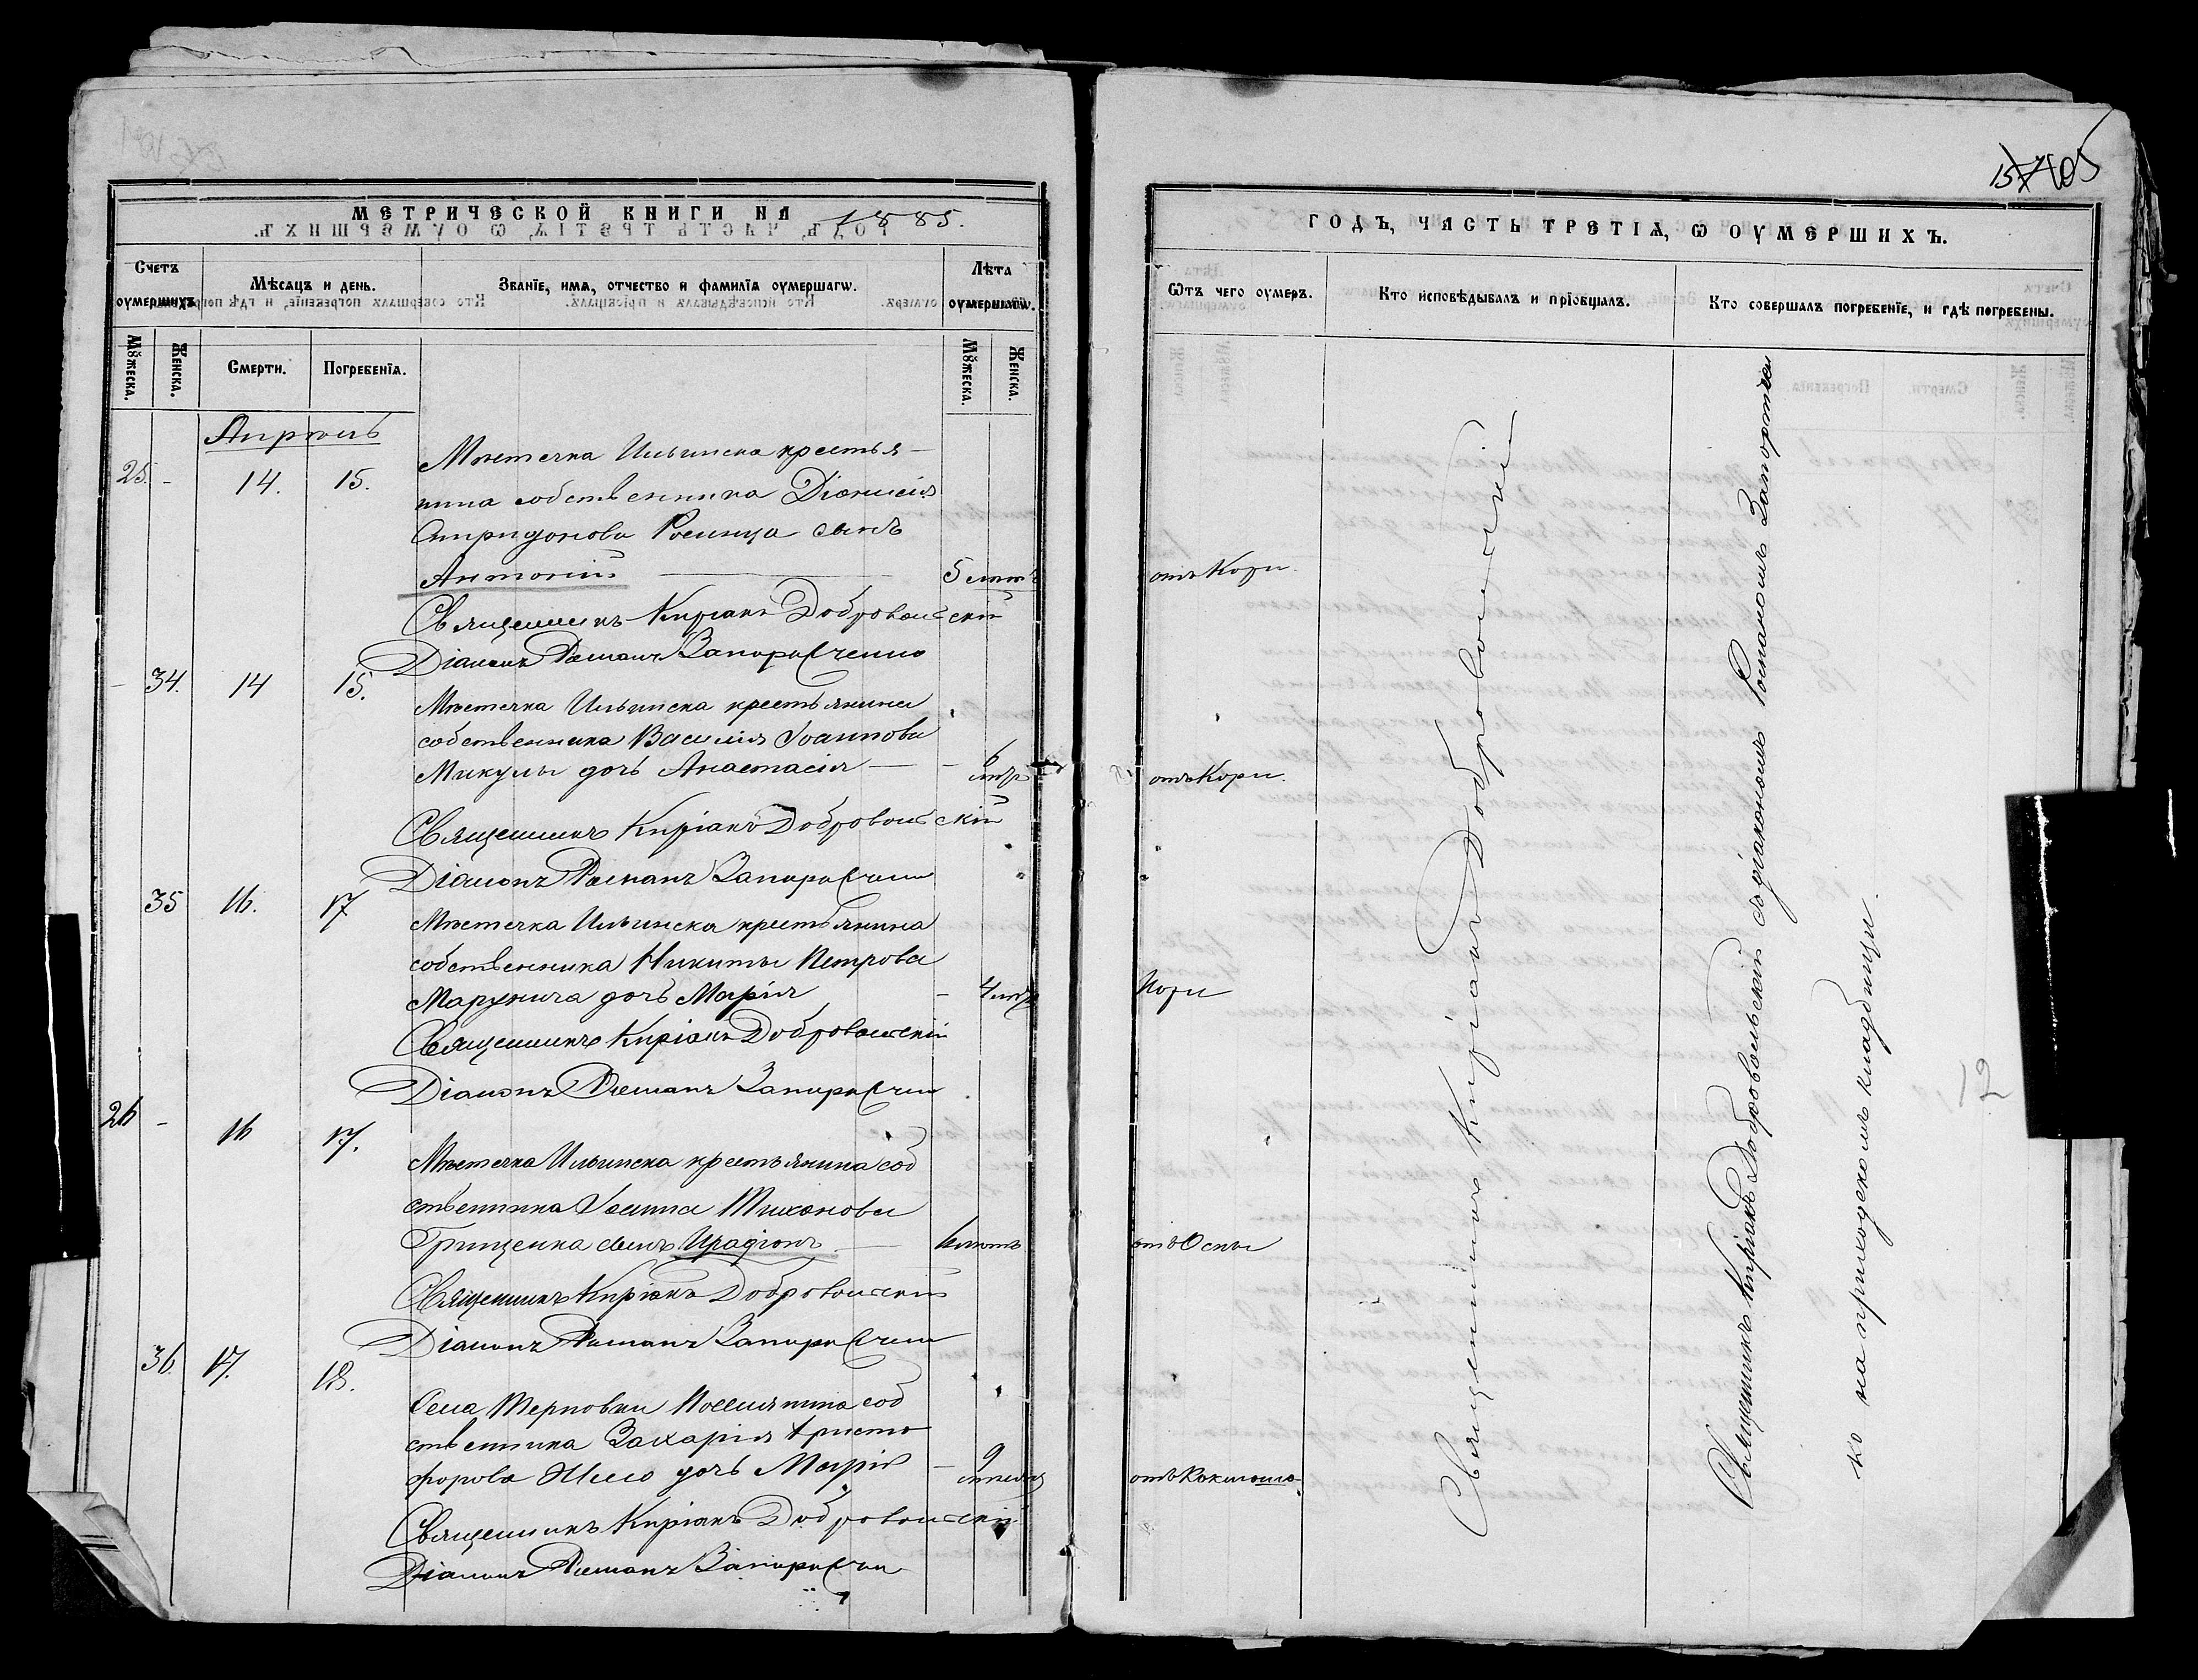 МЕТРИЧЕСКОЙ КНИГИ НА 1885.
Счетъ оумершихъ.
Мѣсяцъ и день.
Званїе, имя, отчество и фамилїа оумершагѡ.
Лѣта оумершагѡ.
Мꙋжеска.
Женска.
Смерти.
Погребенїа.
Мꙋжеска.
Женска.
Апрѣль
25. - 14. 15.
Мѣстечка Ильинска крестья-
нина собственника Діонисія
Спиридонова Росинца сынъ
Антоній 5 лѣтъ
Священникъ Киріакъ Добровольскій
Діаконъ Романъ Запорожченко
- 34. 14 15.
Мѣстечка Ильинска крестьянина
собственника Василія Іоаннова
Микулы дочь Анастасія - 6 лѣтъ
Священникъ Киріакъ Добровольскій
Діаконъ Романъ Запорожченко
35 16. 17
Мѣстечка Ильинска крестьянина
собственника Никиты Петрова
дочь Марія - 4 лѣтъ
Священникъ Киріакъ Добровольскій
Діаконъ Романъ Запорожченко
26 - 16 17.
Мѣстечка Ильинска крестьянина соб
ственника Іоанна Тихонова
Грищенка сынъ Иродіонъ
Священникъ Киріакъ Добровольскій
Діаконъ Романъ Запорожченко
36. 17. 18.
Села Терновки соб
ственника Захарія Христо
форова дочь Марія - 9
Священникъ Киріакъ Добровольскій
Діаконъ Романъ Запорожченко
ГОДЪ, ЧАСТЬ ТРЕТІА, Ѡ ОУМЕРШИХЪ.
Ѿтъ чего оумеръ.
Кто исповѣдывалъ и прїобщалъ.
Кто совершалъ погребенїе, и гдѣ погребены.
отъ Кори.
отъ Кори.
Кори
отъ Оспы
отъ Коклюша
Священникъ Киріакъ Добровольскій
Священникъ Киріакъ Добровольскій съ діакономъ Романомъ Запорожчен
ко на приходскомъ кладбищи.
12